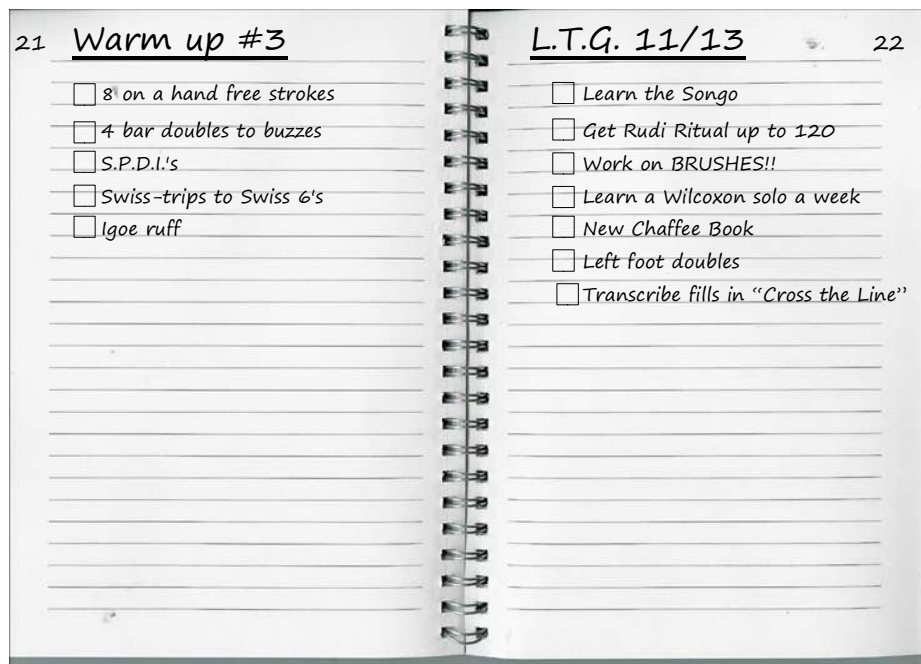 21
Warm up #3
8 on a hand free strokes
4 bar doubles to buzzes
S.P.D.I.'s
Swiss-trips to Swiss 6's
Igoe ruff
L.T.G. 11/13
22
Learn the Songo
Get Rudi Ritual up to 120
Work on BRUSHES!!
Learn a Wilcoxon solo a week
New Chaffee Book
Left foot doubles
Transcribe fills in “Cross the Line”